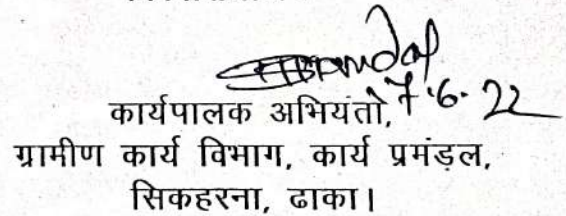 7.6.22
कार्यपालक अभियंता,
ग्रामीण कार्य विभाग, कार्य प्रमंड़ल,
सिकहरना, ढाका।